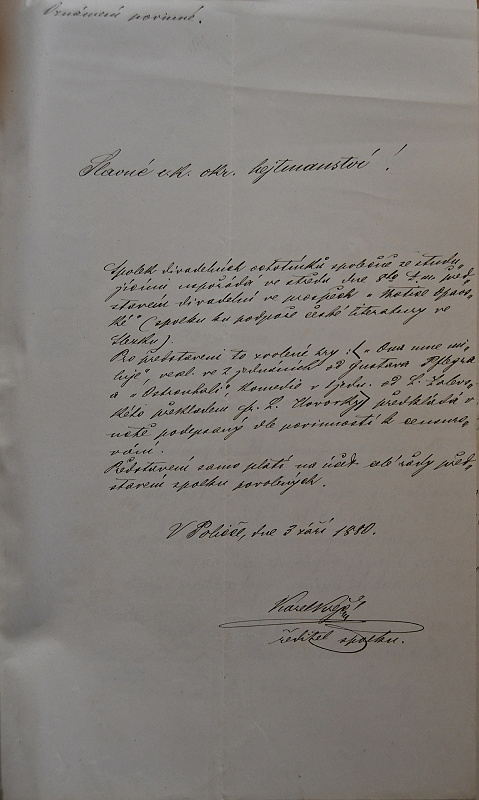 Oznámení povinné.
Slavné c.k. okr. hejtmanství!
Spolek divadelních ochotníků společně se studu-
jícími uspořádá ve středu dne 8ho t.m. před-
stavení divadelní ve prospěch „Matice Opav-
ské“ (spolku ku podpoře české literatury ve
Slezku).
Pro představení to zvolené hry: („Ona mne mi-
luje“, vesel. ve 2 jednáních od Gustava Pflegra
a „Ostrouhali“, komedie v 1 jedn. od L.
překladem p. L. Novorky) předkládá v
úctě podepsaný dle povinnosti k censuro-
vání.
Představení samo platí na účet celé řady před-
stavení spolku povolených.
V Poličce, dne 3 září 1880.
Karel
ředitel spolku.